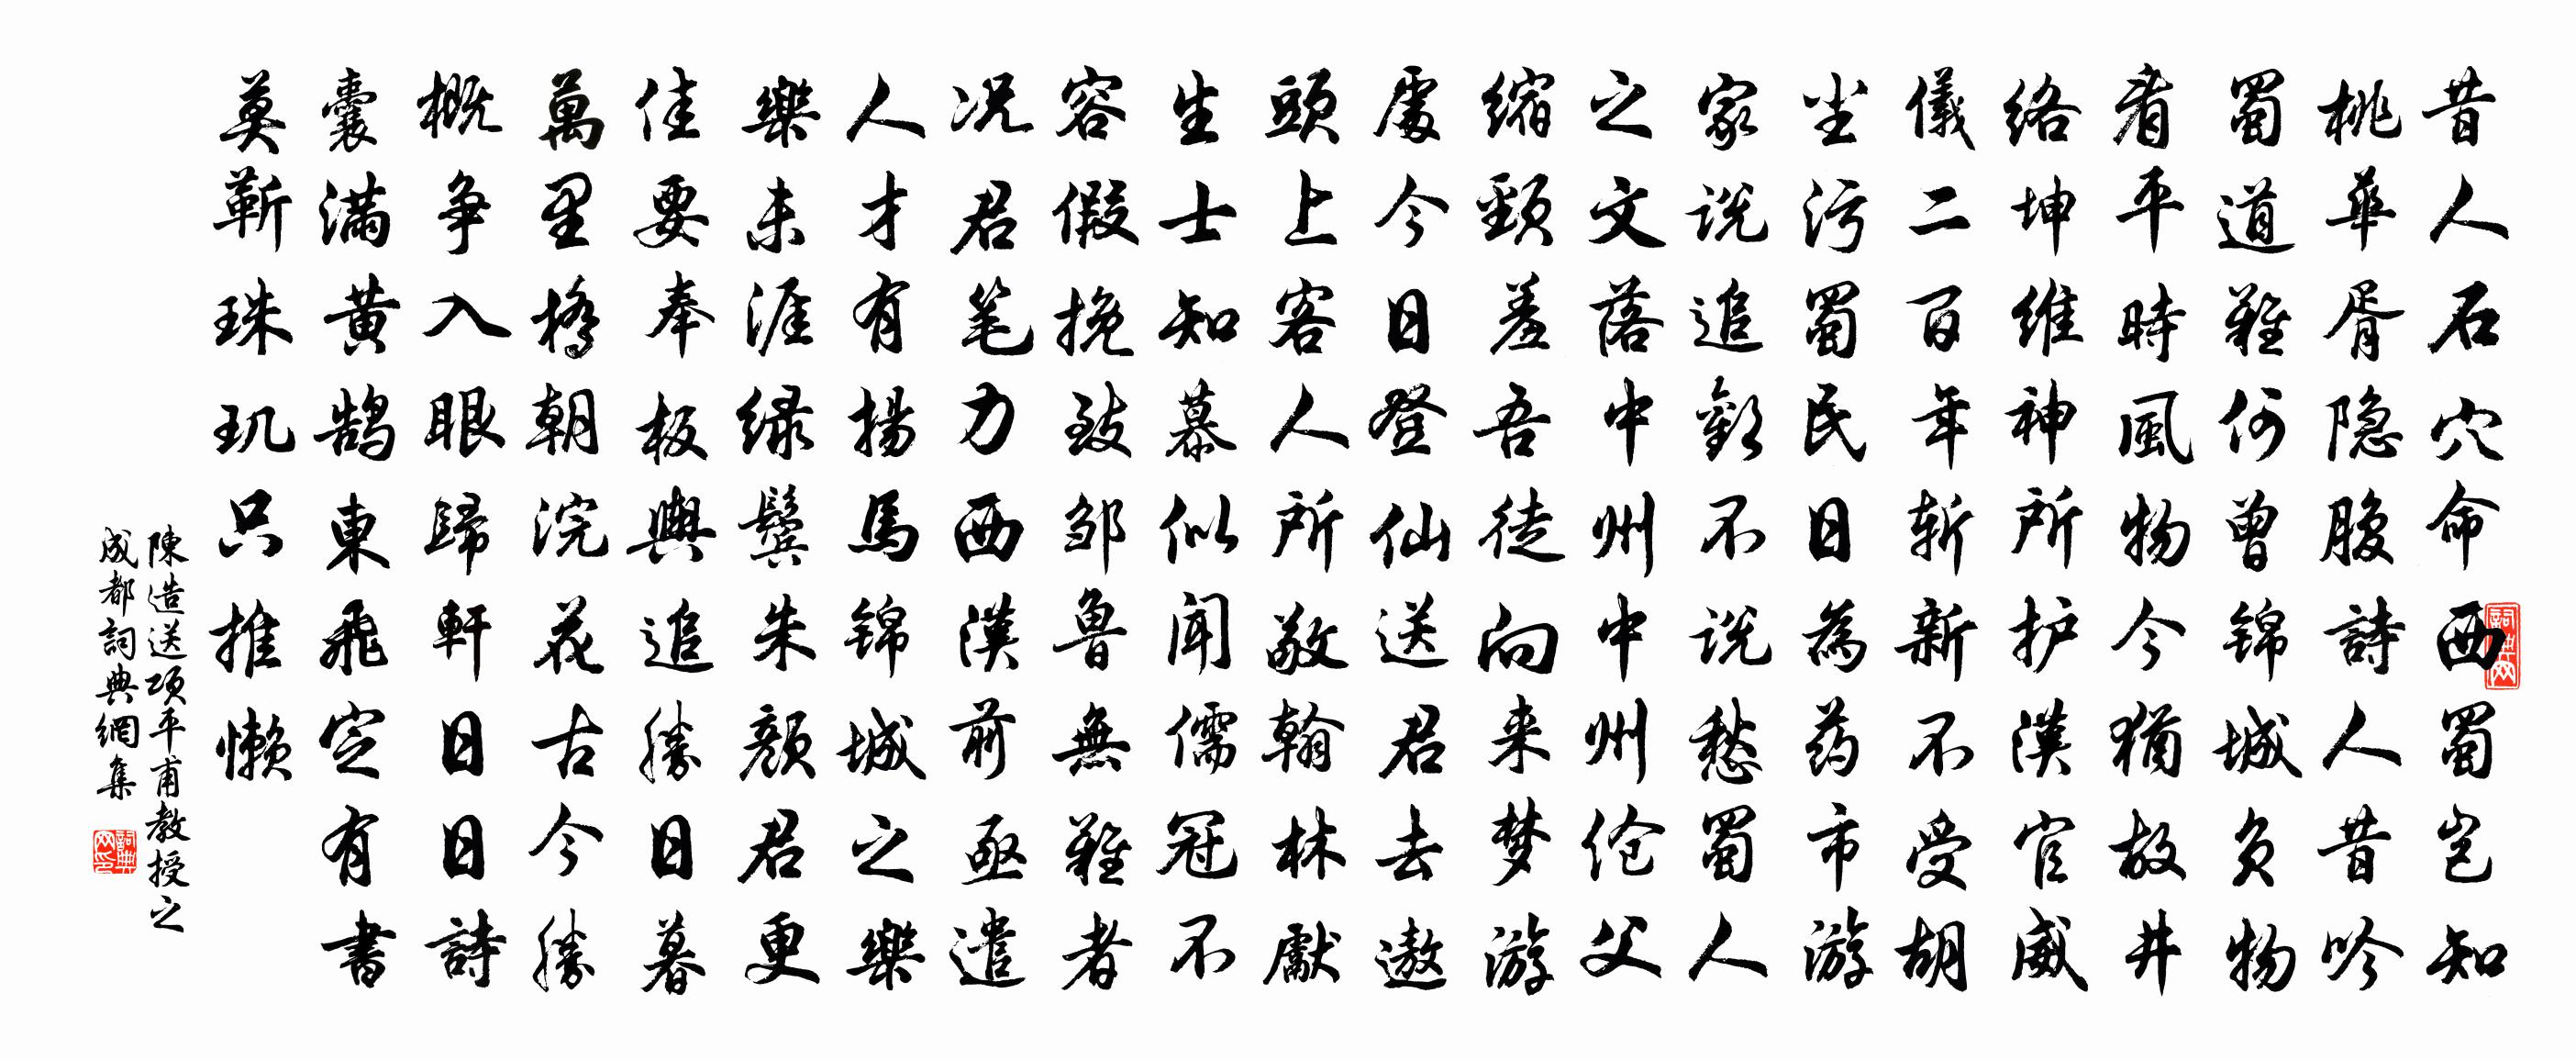 昔人石穴命西蜀豈知
桃華胥隐腹詩人昔吟
蜀道難何曾锦城負物
肴平時風物今猶故井
络坤維神所护漢官威
儀二百年斬新不受胡
尘污蜀民日為药市游
家説追歡不説愁蜀人
之文落中州中州伧父
缩頸羞吾徒向来梦游
處今日登仙送君去遨
頭上客人所敬翰林獻
生士知慕似闻儒冠不
容假挽致邹魯無難者
况君笔力西漢前亟遣
人才有揚馬锦城之樂
樂未涯绿鬓朱颜君更
佳要奉板輿追勝日暮
萬里橋朝浣花古今勝
概争入眼歸軒日日詩
囊满黄鹄東飛定有書
莫靳珠玑只推懒
陳造送项平甫教授之
成都詞典網集